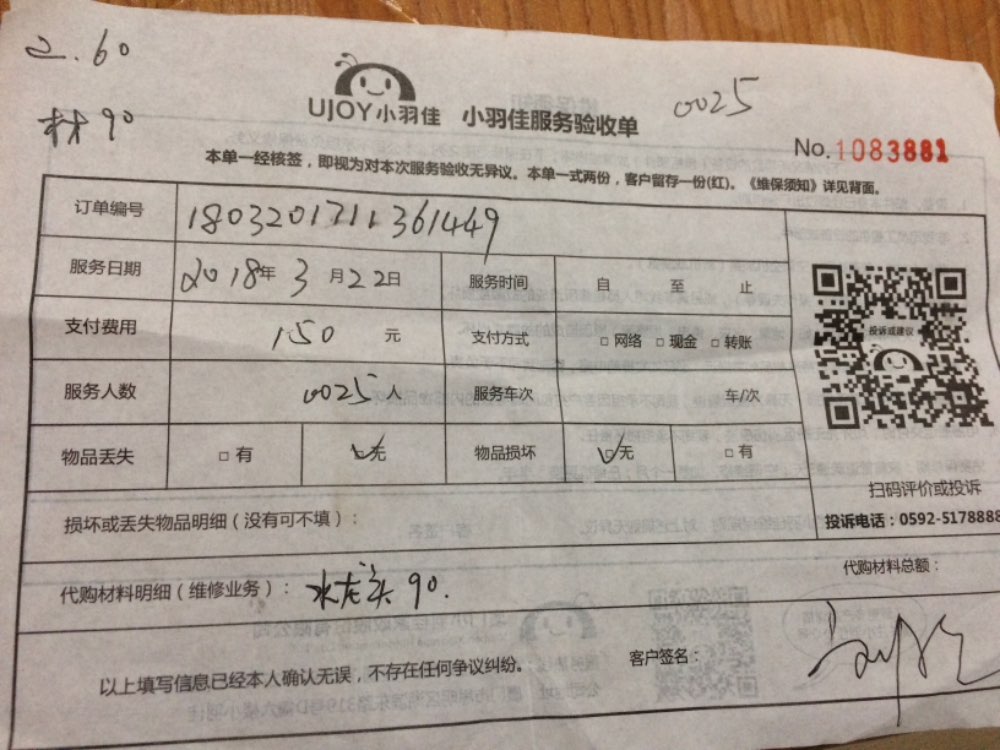 工.60
材90
UJOY小羽佳 小羽佳服务验收单
0025
No.1083881
本单一经核签，即视为对本次服务验收无异议。本单一式两份，客户留存一份(红)。《维保须知》详见背面。
订单编号 1803201711361449
服务日期 2018年3月22日 服务时间 自 至 止
支付费用 150 元 支付方式 □网络 □现金 □转账
服务人数 0025人 服务车次 车/次
物品丢失 □有 ☑无 物品损坏 ☑无 □有
投诉或建议
扫码评价或投诉
投诉电话：0592-5178888
损坏或丢失物品明细（没有可不填）：
代购材料明细（维修业务）：水龙头90.
代购材料总额：
以上填写信息已经本人确认无误，不存在任何争议纠纷。
客户签名：